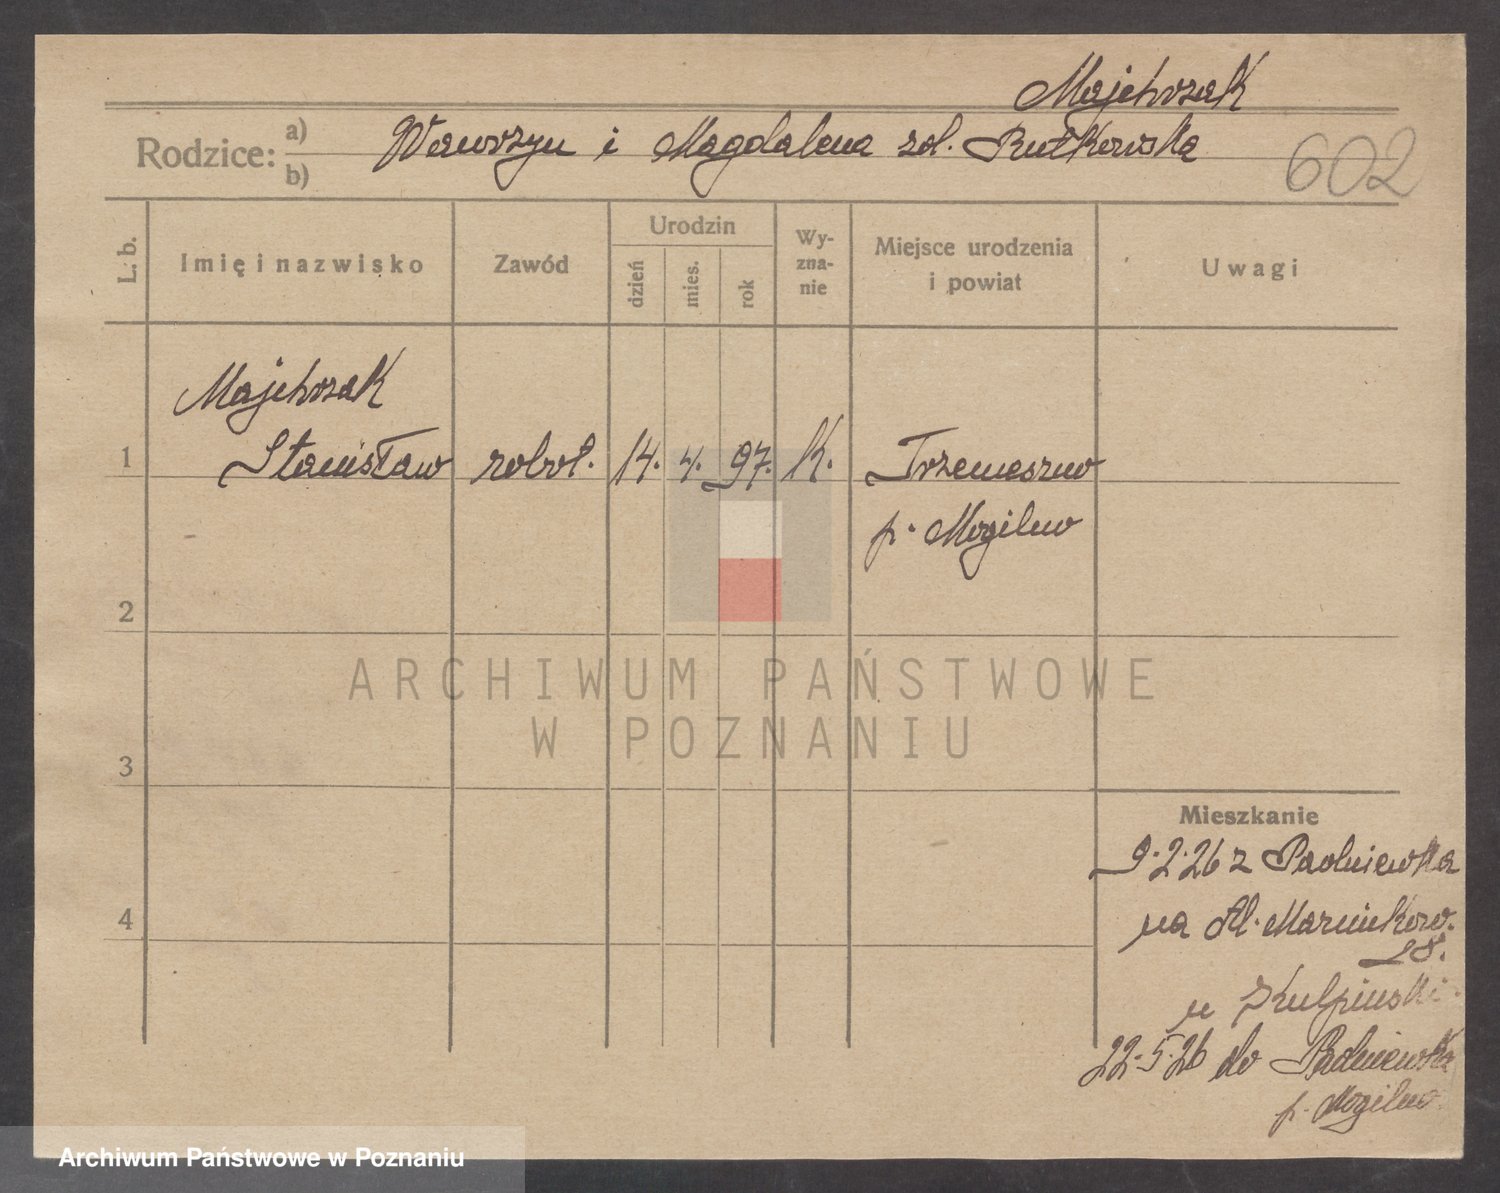 Majchrzak
Rodzice: a) Wawrzyn i Magdalena zd. Rutkowska
b)
602
L. b.
Imię i nazwisko
Zawód
Urodzin
dzień
mies.
rok
Wy-
zna-
nie
Miejsce urodzenia
i powiat
Uwagi
Majchrzak
1 Stanisław robot. 14. 4. 97. K. Trzemeszno
p. Mogilno
2
ARCHIWUM PAŃSTWOWE
W POZNANIU
3
Mieszkanie
9.2.26 z Padniewka
4
na Al. Marcinkow.
28.
u
22.5.26 do Padniewka
p. Mogilno
Archiwum Państwowe w Poznaniu